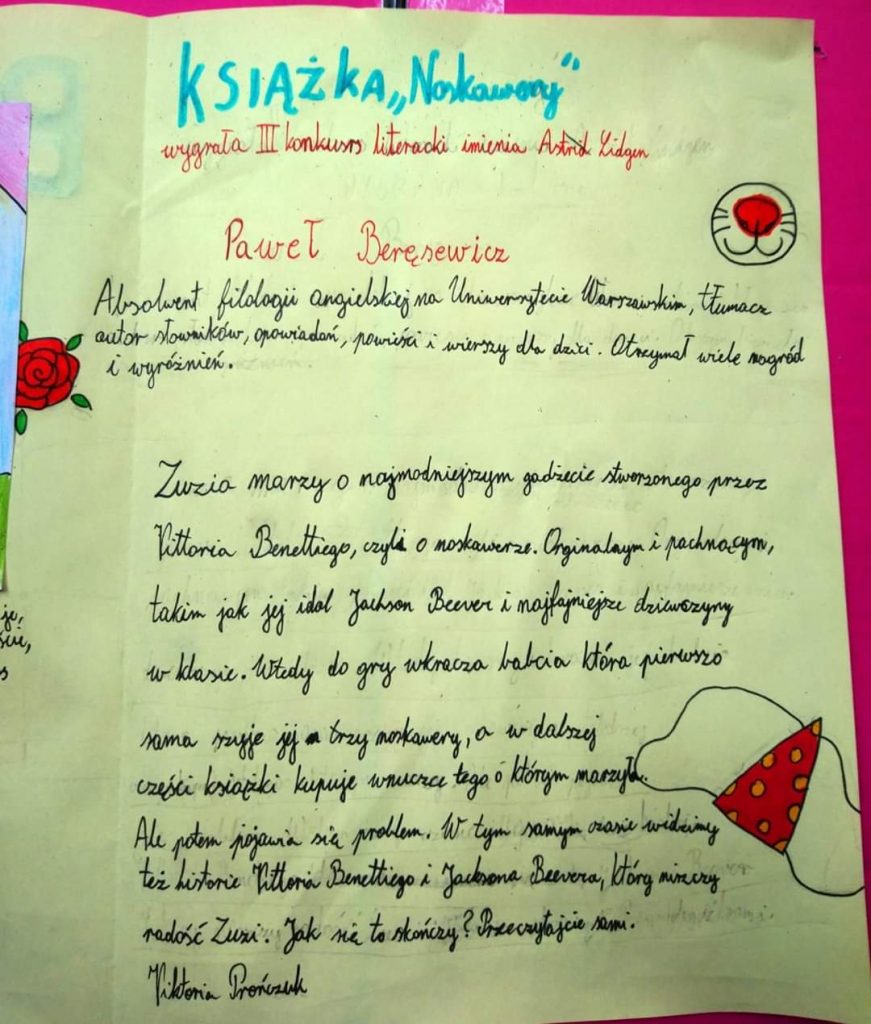 KSIĄŻKA „Noskawery"
wygrała III konkurs literacki imienia Astrid Lidgen
Paweł Beręsewicz
Absolwent filologii angielskiej na Uniwersytecie Warszawskim, tłumacz
autor słowników, opowiadań, powieści i wierszy dla dzieci. Otrzymał wiele nagród
i wyróżnień.
Zuzia marzy o najmodniejszym gadżecie stworzonego przez
Vittoria Benettiego, czyli o noskawerze. Orginalnym i pachnącym,
takim jak jej idol Jackson Beever i najfajniejsze dziewczyny
w klasie. Wtedy do gry wkracza babcia która pierwszo
sama szyje jej trzy noskawery, a w dalszej
części książki kupuje wnuczce tego o którym marzyła.
Ale potem pojawia się problem. W tym samym czasie widzimy
też historie Vittoria Benettiego i Jacksona Beevera, który niszczy
radość Zuzi. Jak się to skończy? Przeczytajcie sami.
Viktoria Prończuk